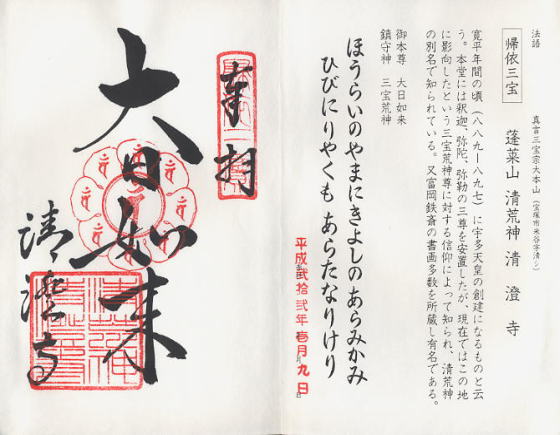 法語
帰依三宝
真言三宝宗大本山(宝塚市米谷字清シ)
蓬莱山 清荒神 清澄寺
寛平年間の頃(八八九ー八九七)に宇多天皇の創建になるものと云
う。本堂には釈迦、弥陀、弥勒の三尊を安置したが、現在ではこの地
に影向したという三宝荒神尊に対する信仰によって知られ、清荒神
の別名で知られている。又富岡鉄斎の書画多数を所蔵し有名である。
御本尊 大日如来
鎮守神 三宝荒神
ほうらいのやまにきよしのあらみかみ
ひびにりやくも あらたなりけり
平成弐拾弐年壱月九日
奉拝
大日如来
清澄寺